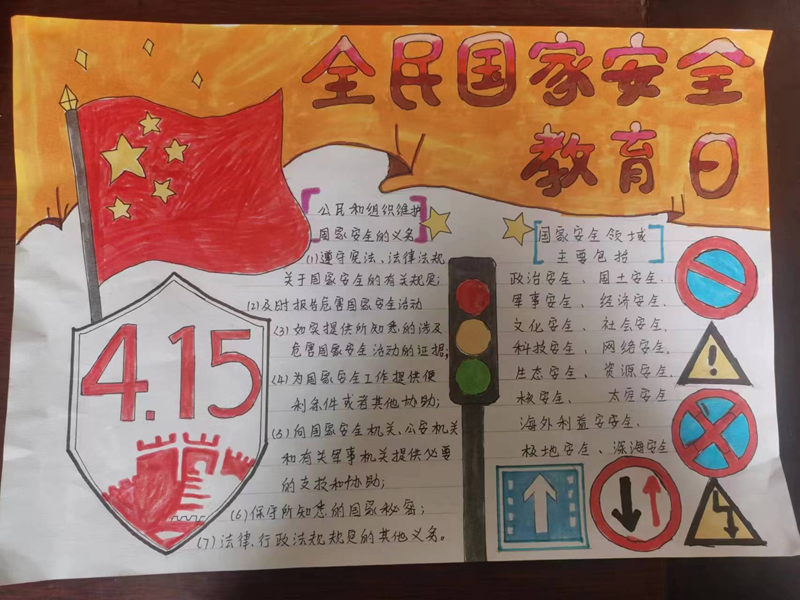 全民国家安全
教育日
4.15
公民和组织维护
国家安全的义务
(1)遵守宪法、法律法规
关于国家安全的有关规定;
(2)及时报告危害国家安全活动
(3)如实提供所知悉的涉及
危害国家安全活动的证据;
(4)为国家安全工作提供便
利条件或者其他协助;
(5)向国家安全机关、公安机关
和有关军事机关提供必要
的支技和协助;
(6)保守所知悉的国家秘密;
(7)法律、行政法规规定的其他义务。
国家安全领域
主要包括
政治安全、国土安全、
军事安全、经济安全、
文化安全、社会安全、
科技安全、网络安全、
生态安全、资源安全、
核安全、太空安全
海外利益安安全、
极地安全、深海安全